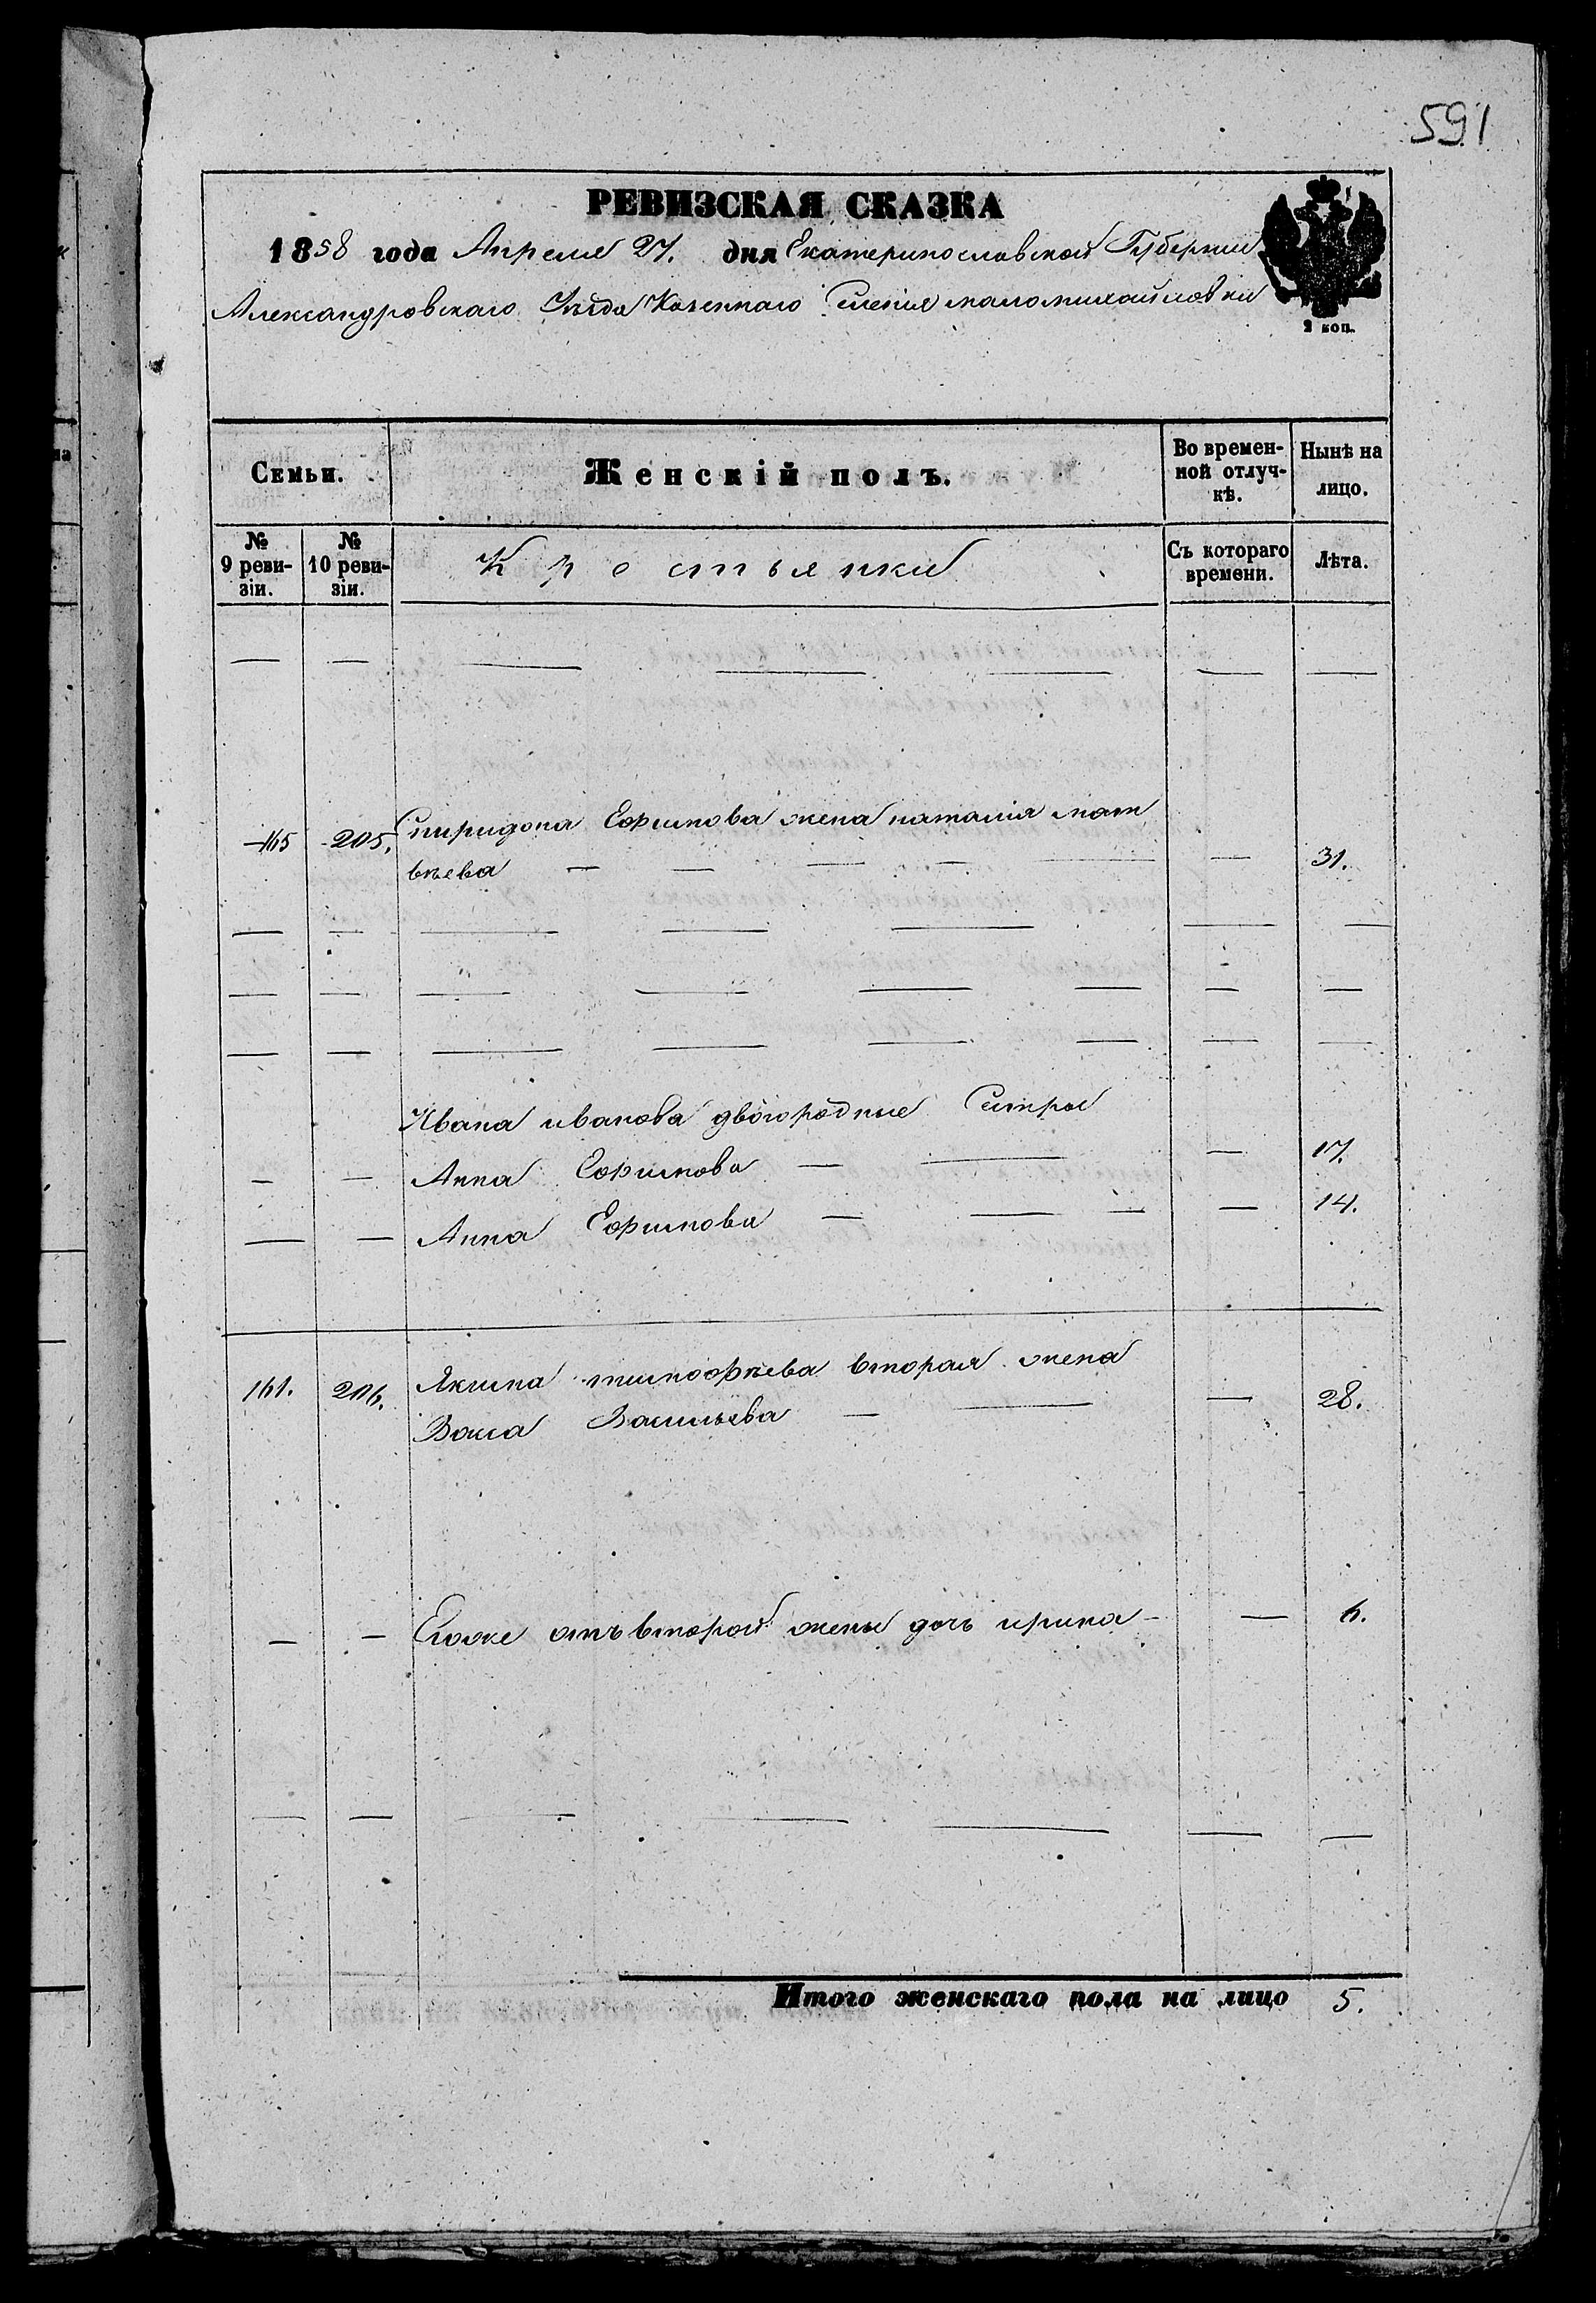 591
РЕВИЗСКАЯ СКАЗКА
1858 года Апреля 27. дня Екатеринославской Губернии
Александровскаго Уѣзда Казеннаго Селенія маломихайловки
2 коп.
Семьи. Женскій полъ. Во временной отлучкѣ. Нынѣ на лицо.
№ 9 ревизіи. № 10 ревизіи. Крестьянки Съ котораго времени. Лѣта.
— — — — — — —
165 205. Спиридона Ефимова жена наталія мат
вѣева — — — — — — 31.
— — — — — — —
— — — — — — — —
— — — — — — — —
Ивана иванова двоюродные Сестры
— — Анна Ефимова — — — 17.
— — Анна Ефимова — — — — 14.
161. 206. Якима тимофѣева вторая жена
Васса Васильева — — — 28.
— — Егоже отъ второй жены дочь ирина — — 6.
— — — — — — —
Итого женскаго пола на лицо 5.